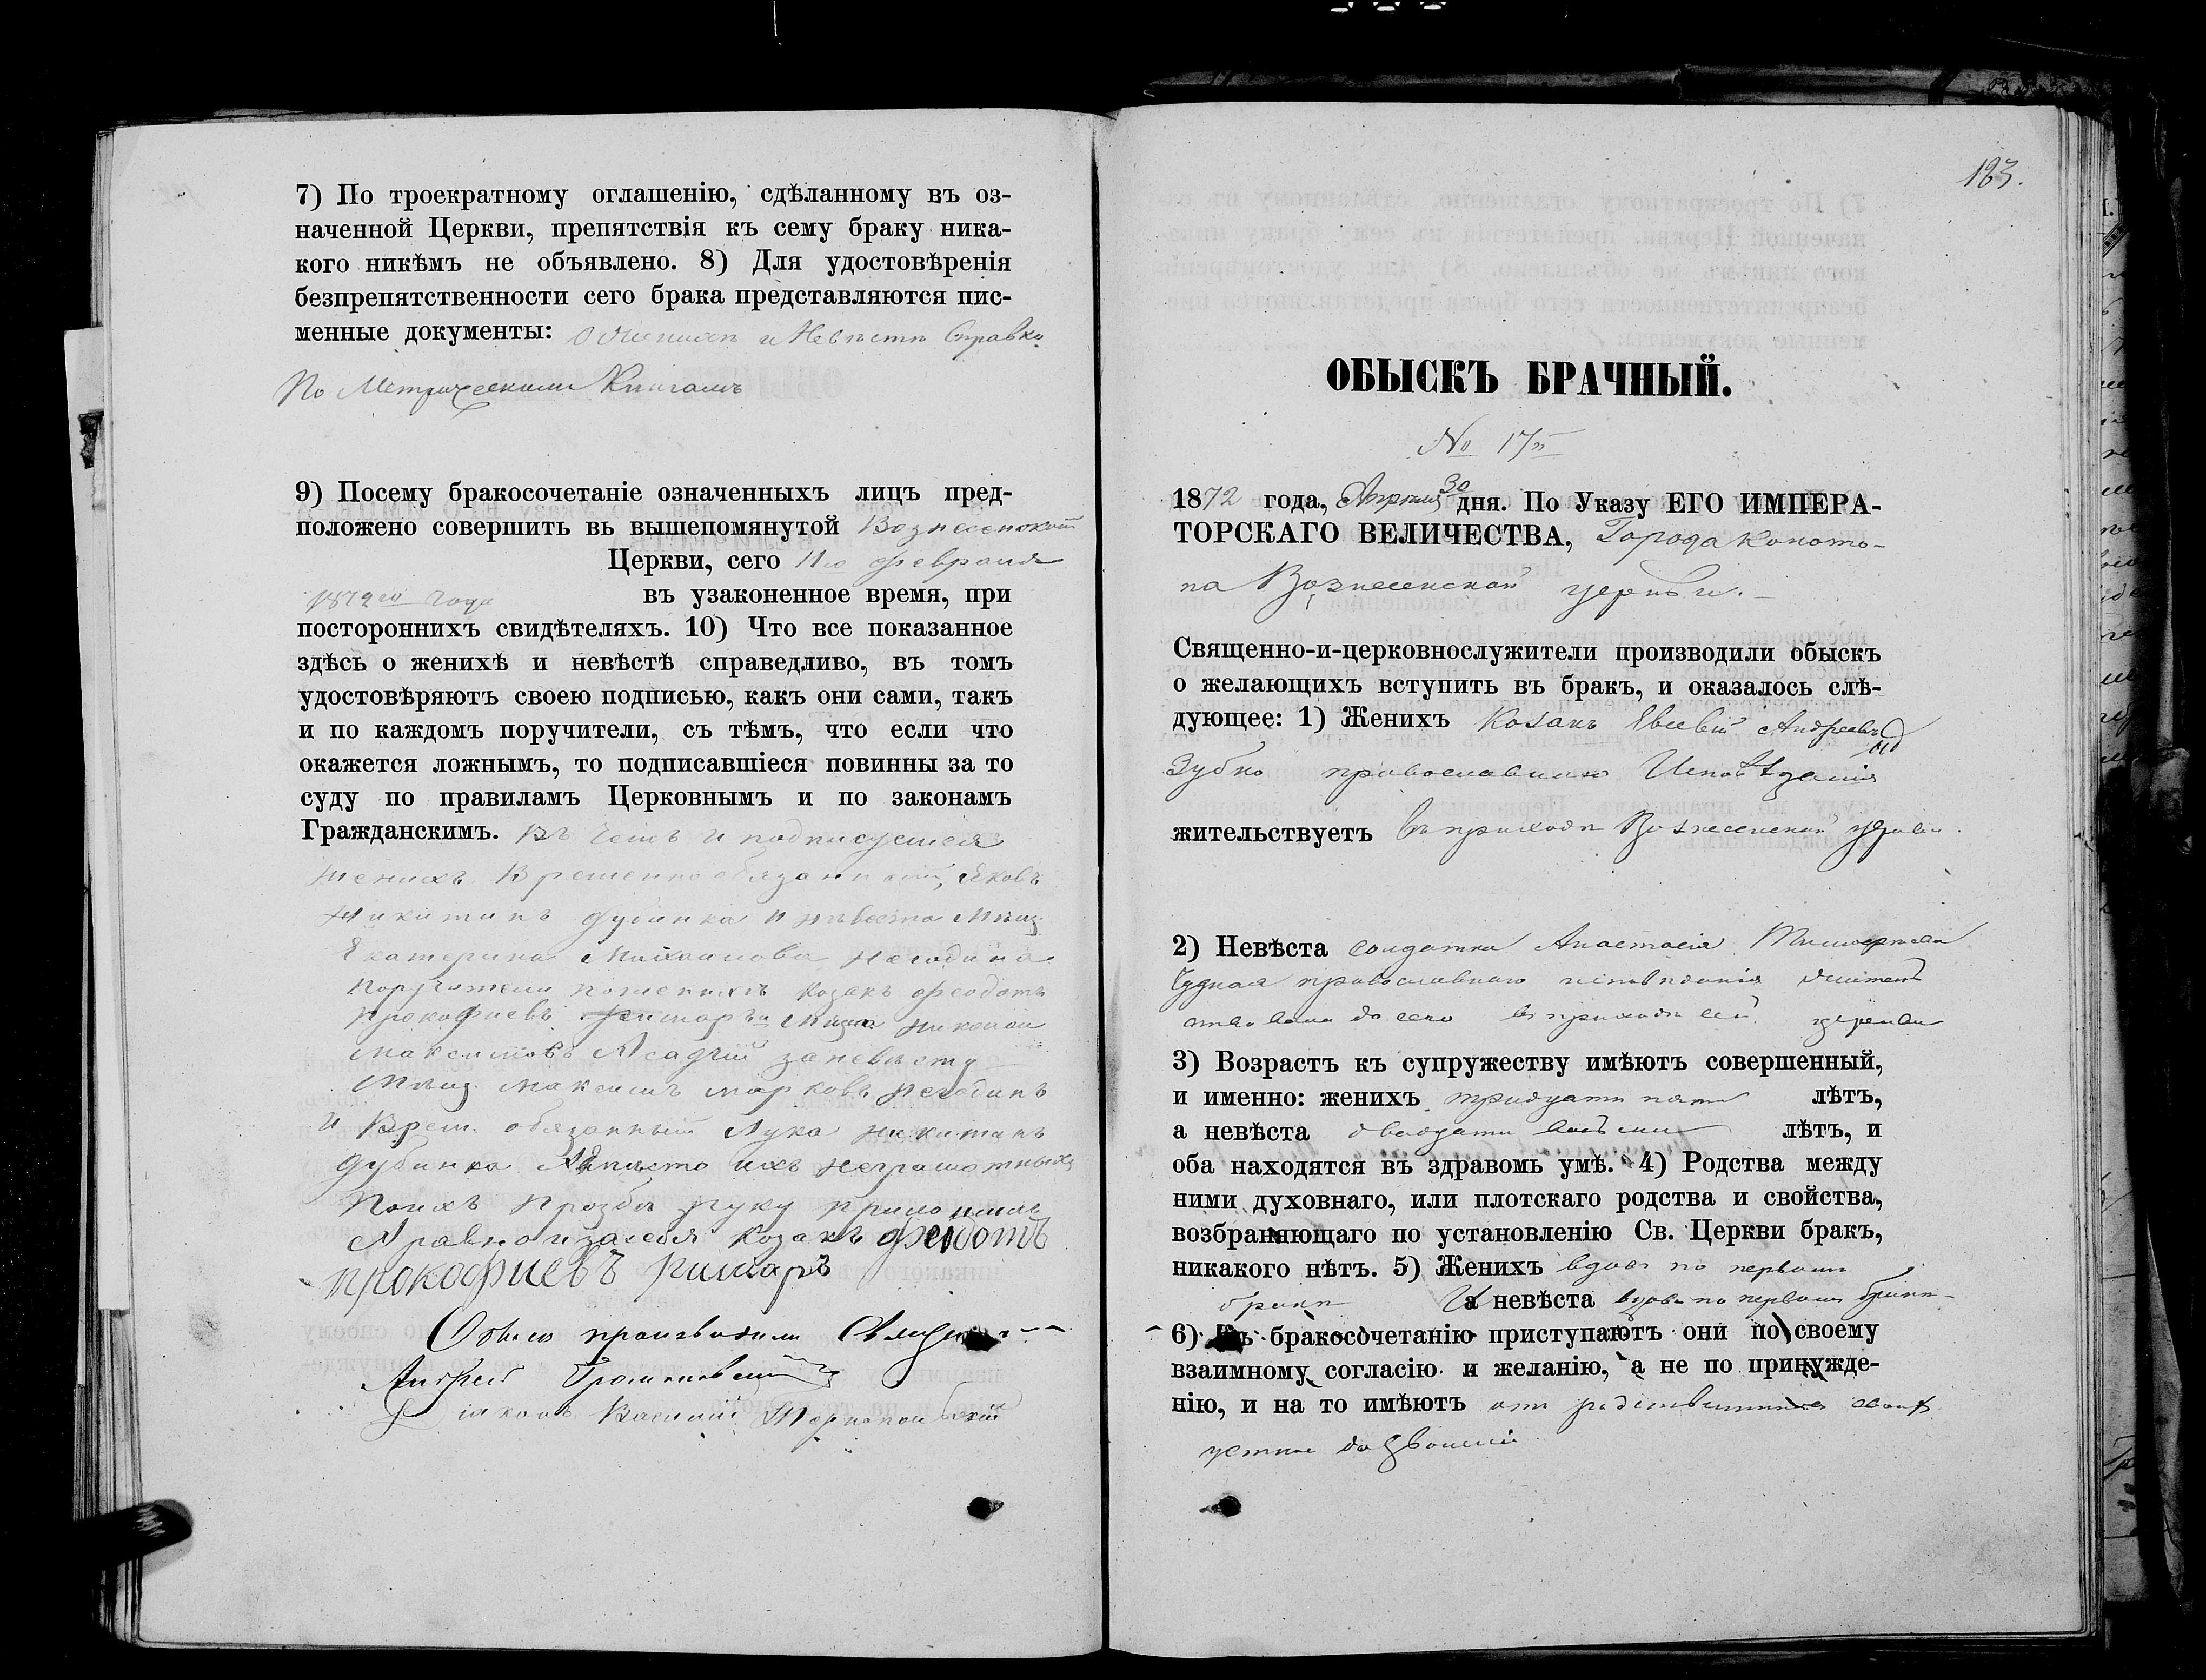 7) По троекратному оглашенію, сдѣланному въ оз-
наченной Церкви, препятствія къ сему браку ника-
кого никѣмъ не объявлено. 8) Для удостовѣренія
безпрепятственности сего брака представляются пис-
менные документы: О женихѣ и Невѣстѣ Справка
По Метрическимъ Книгамъ
9) Посему бракосочетаніе означенныхъ лицъ пред-
положено совершить вь вышепомянутой Вознесенской
Церкви, сего 11го февраля
1872го года въ узаконенное время, при
постороннихъ свидѣтеляхъ. 10) Что все показанное
здѣсь о женихѣ и невѣстѣ справедливо, въ томъ
удостовѣряютъ своею подписью, какъ они сами, такъ
и по каждомъ поручители, съ тѣмъ, что если что
окажется ложнымъ, то подписавшіеся повинны за то
суду по правиламъ Церковнымъ и по законамъ
Гражданскимъ. Въ Чемъ и подписуемся
женихъ Временнообязанный, Яковъ
Никитинъ дубинка и нѣвеста Мѣщ.
Екатерина Михайлова Негодина
Поручители по женихѣ козакъ Феодотъ
Прокофиевъ мѣщ. Николай
Максимовъ за невѣсту
Мѣщ. Максимъ Марковъ Негодинъ
и Врем. обязанный Лука Никитинъ
дубинка а вмѣсто ихъ неграмотныхъ
По ихъ Прозбѣ руку приложилъ
А равно и за себя козакъ Фейдотъ
прокофиевъ римаръ
Обыскъ производили
Андрей
Діаконъ Василий
183.
ОБЫСКЪ БРАЧНЫЙ.
№ 17й
1872 года, Апрѣля 30 дня. По Указу ЕГО ИМПЕРА-
ТОРСКАГО ВЕЛИЧЕСТВА, Города Конотo-
па Вознесенской церкви.
Священно-и-церковнослужители производили обыскъ
о желающихъ вступить въ бракъ, и оказалось слѣ-
дующее: 1) Женихъ Козакъ Евсевій Андреевъ
Зубко православнаго Исповѣданія
жительствуетъ въ приходѣ Вознесенской церкви.
2) Невѣста солдатка Анастасія
Чудная православнаго исповѣданія жительст
вовала до сего въ приходѣ сей церкви
3) Возрастъ къ супружеству имѣютъ совершенный,
и именно: женихъ тридцати пяти лѣтъ,
а невѣста двадцати восьми лѣтъ, и
оба находятся въ здравомь умѣ. 4) Родства между
ними духовнаго, или плотскаго родства и свойства,
возбраняющаго по установленію Св. Церкви бракъ,
никакого нѣтъ. 5) Женихъ вдовъ по первомъ
бракѣ а невѣста вдова по первомъ бракѣ
6) Къ бракосочетанію приступаютъ они по своему
взаимному согласію и желанію, а не по принужде-
нію, и на то имѣютъ отъ родственниковъ своихъ
устное дозволеніе